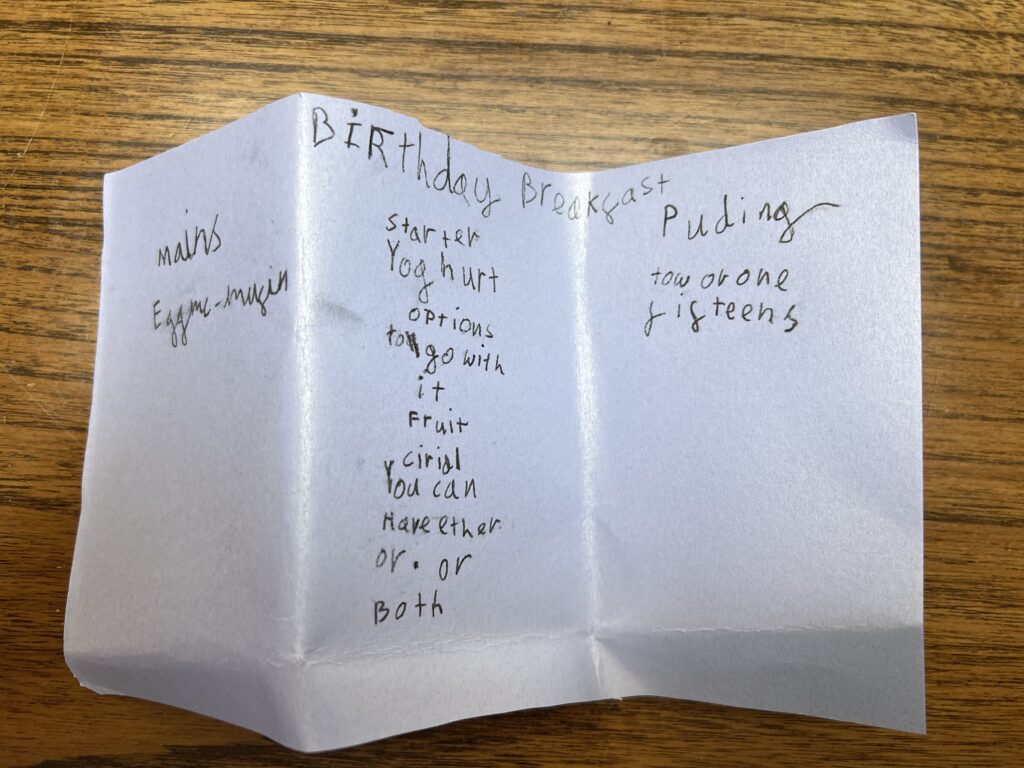 BIRthday Breakfast
mains
Egg mc-mufin
Starter
Yoghurt
options
to go with
it
Fruit
cirial
You can
Have ether
or. or
Both
Puding
tow or one
fifteens